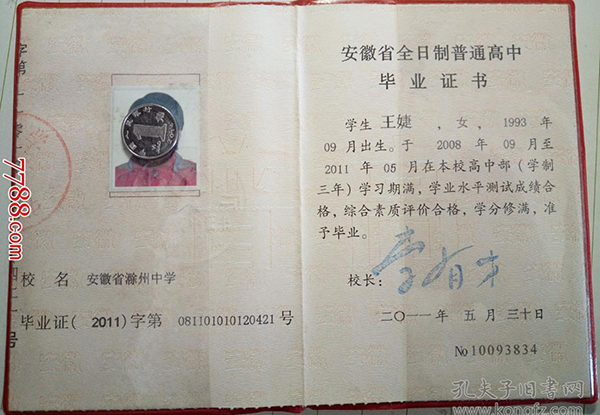 安徽省全日制普通高中
毕业证书
学生 王婕 , 女 , 1993 年
09 月出生。于 2008 年 09 月至
2011 年 05 月在本校高中部(学制
三年)学习期满,学业水平测试成绩合
格,综合素质评价合格,学分修满,准
予毕业。
校长:
二〇一一年 五月 三十日
No 10093834
校 名 安徽省滁州中学
毕业证( 2011)字第 081101010120421 号
7788.com
孔夫子旧书网
www.kongfz.com